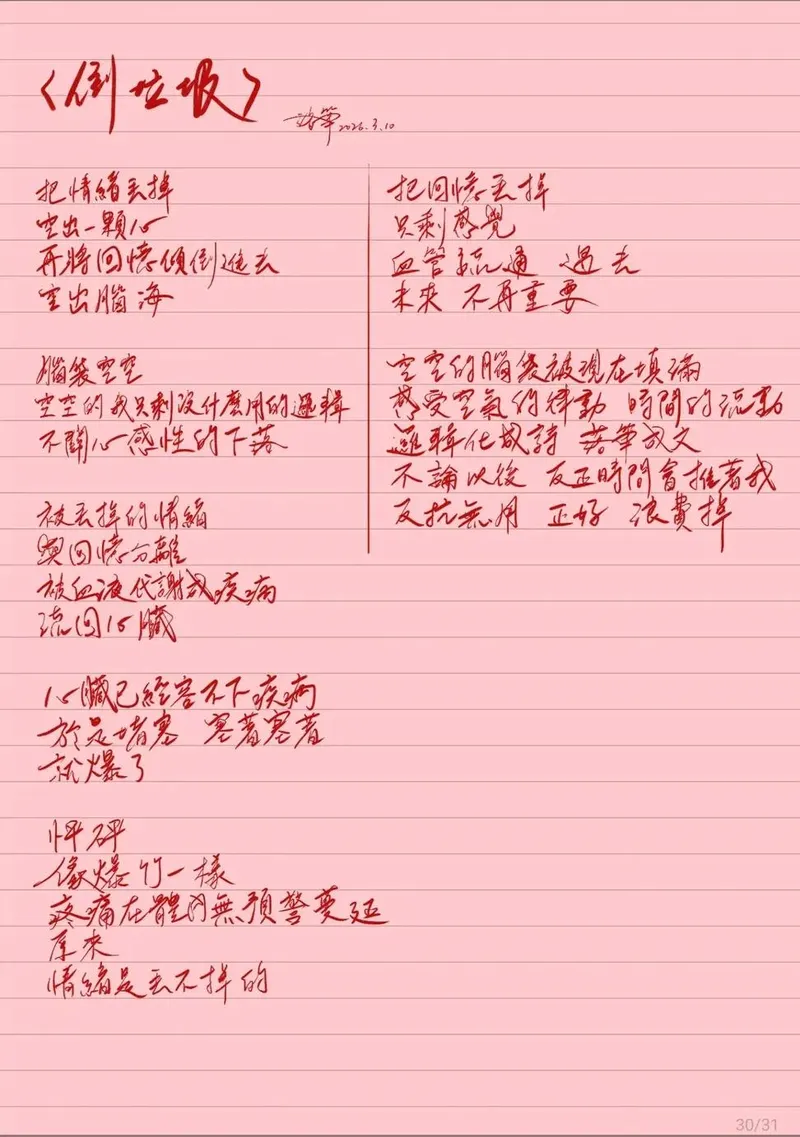 〈倒垃圾〉
落筆 2026.3.10
把情緒丟掉
空出一顆心
再將回憶傾倒進去
空出腦海
腦袋空空
空空的我只剩沒什麼用的邏輯
不關心感性的下落
被丟掉的情緒
與回憶分離
被血液代謝成疾病
流回心臟
心臟已經容不下疾病
於是堵塞 塞著塞著
就爆了
怦砰
像爆竹一樣
疼痛在體內無預警蔓延
原來
情緒是丟不掉的
把回憶丟掉
只剩感覺
血管疏通 過去
未來 不再重要
空空的腦袋被現在填滿
感受空氣的律動 時間的流動
邏輯化成詩 落筆成文
不論以後 反正時間會推著我
反抗無用 正好 浪費掉
30/31